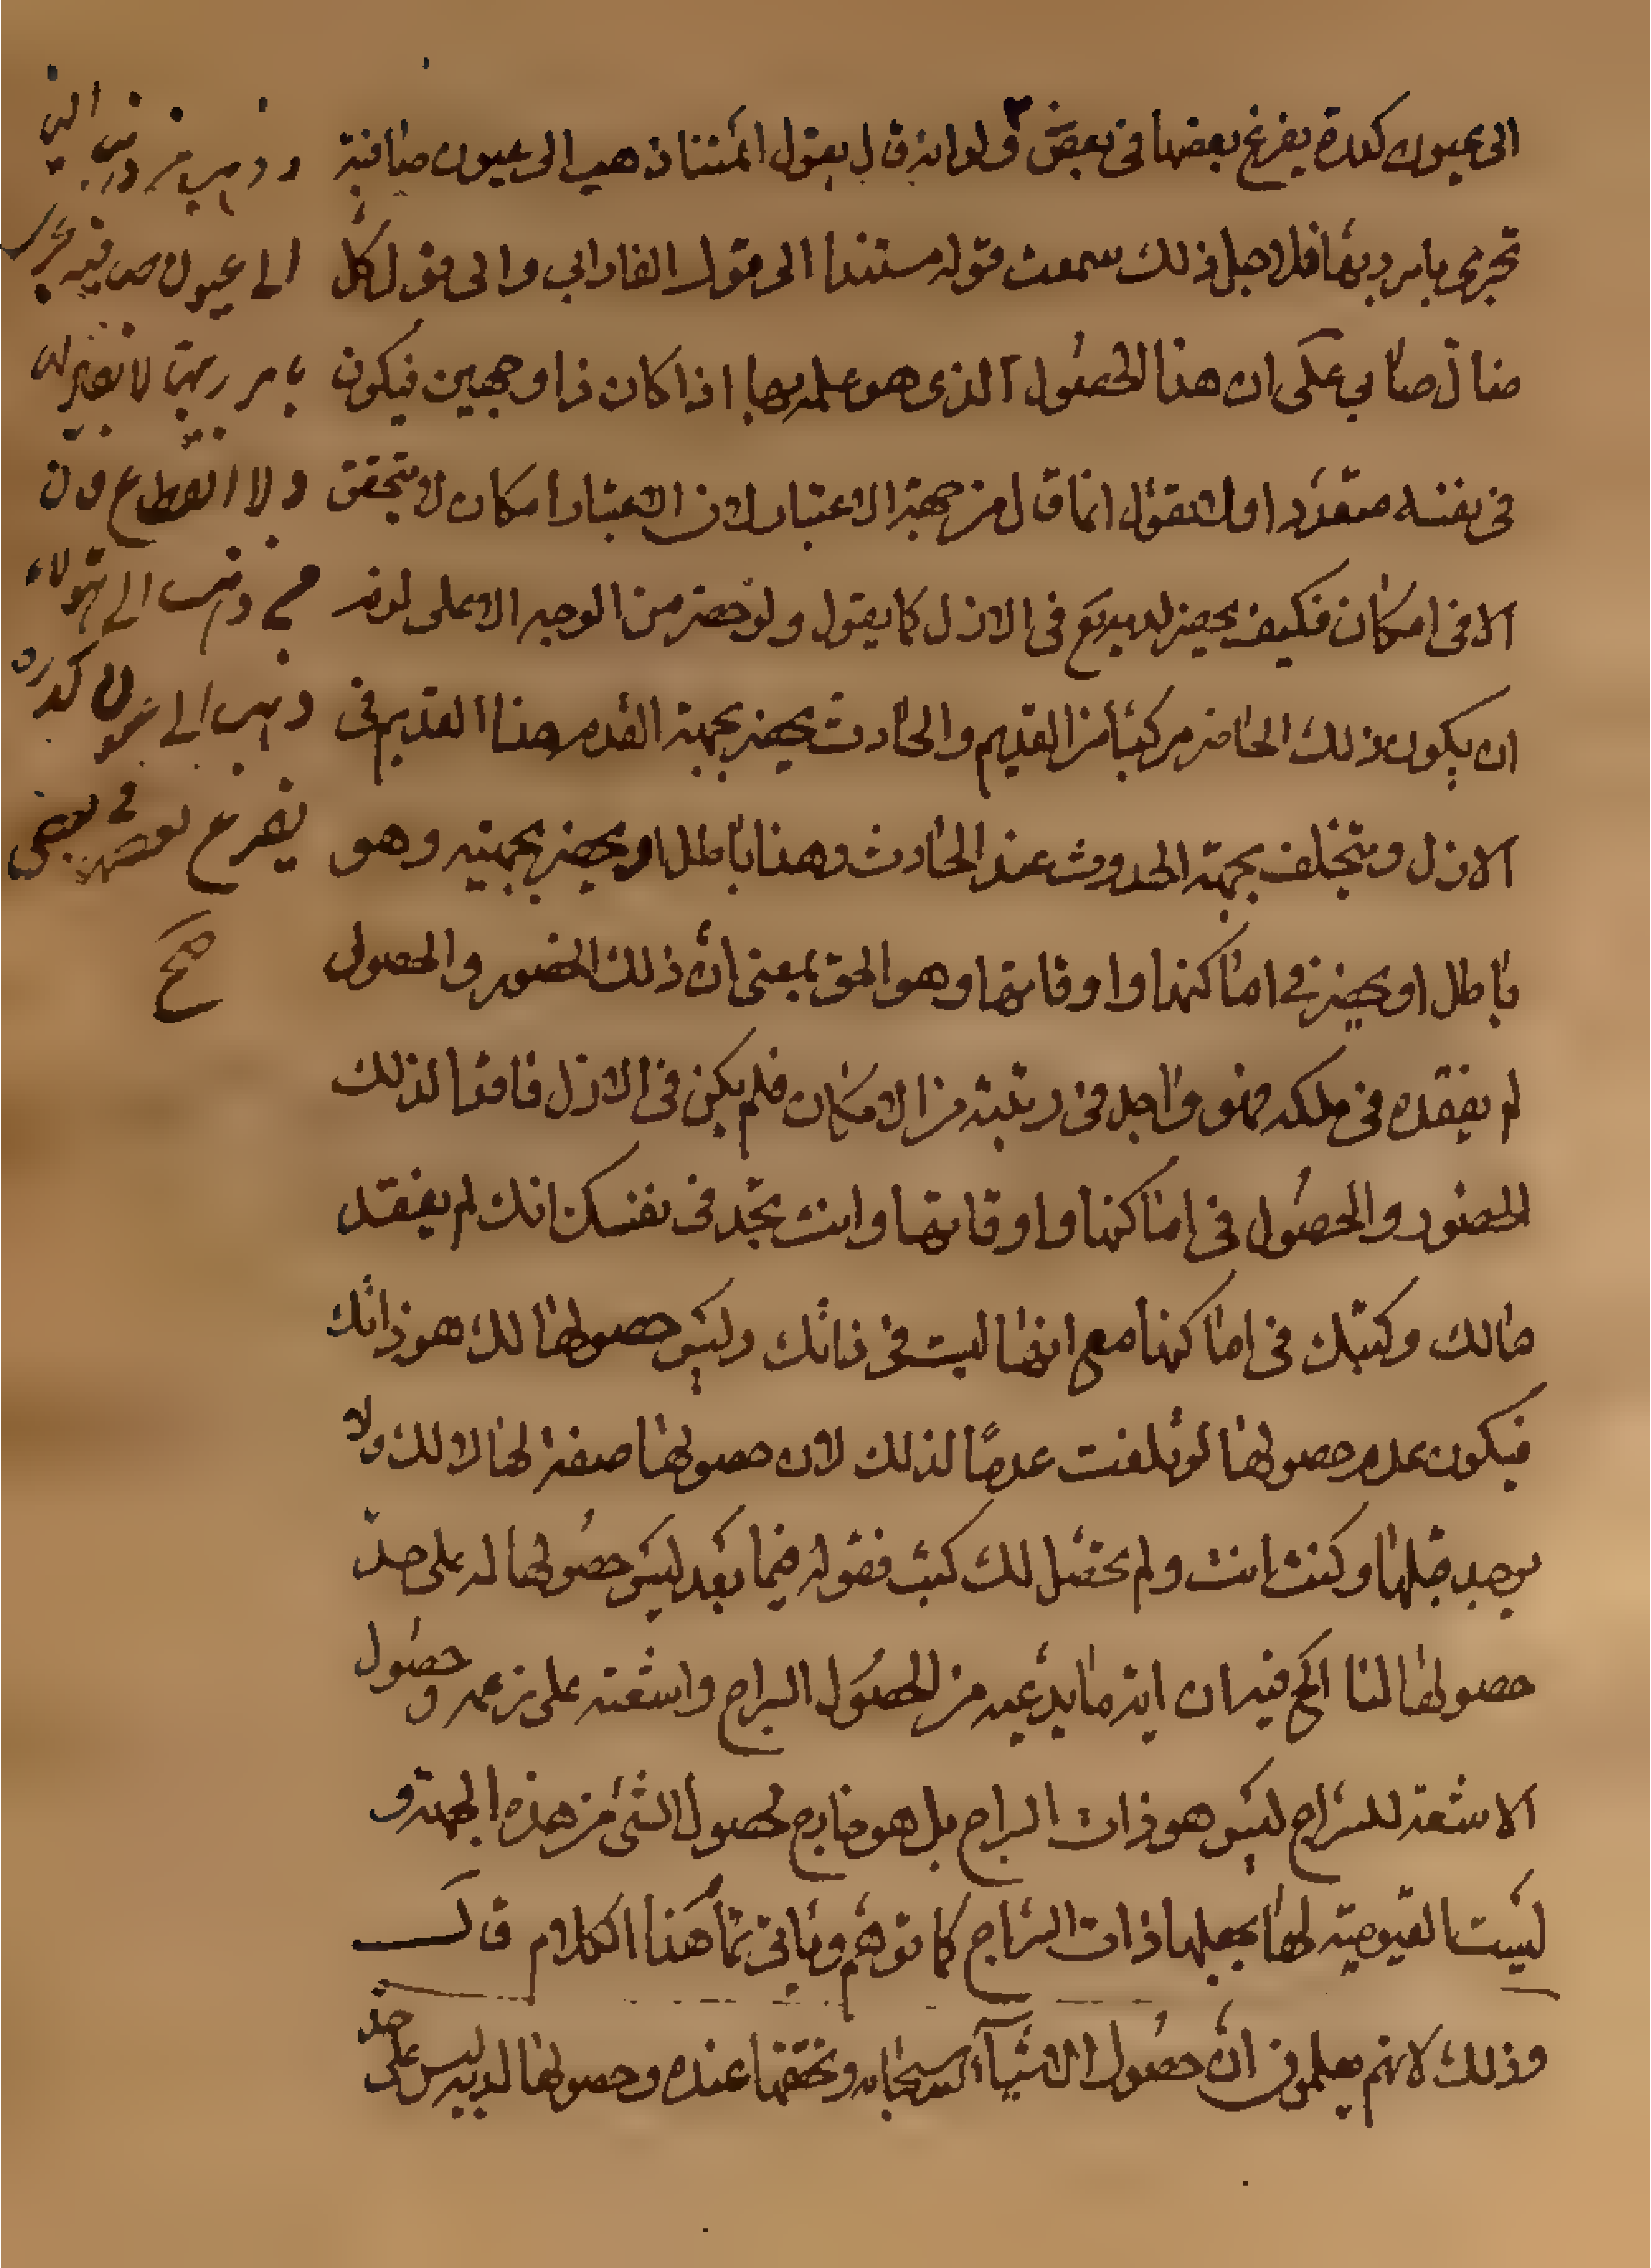 الى عيون كدرة يفرغ بعضها فى بعض ولو انه قال بقول ائمتنا ذهب الى عيون صافية
تجرى بامر ربها فلاجل ذلك سمعت قوله مستندا الى قول الفارابى والى قول كل
ضال صابى على ان هذا الحصول الذى هو علمه بها اذا كان ذا وجهين فيكون
فى نفسه متعدد اولا تقول انما قال من جهة الاعتبار لان الاعتبار امكان لا يتحقق
الا فى امكان فكيف يحضر لديه مع فى الازل كما يقول ولو حضر من الوجه الاعلى لزم
ان يكون ذلك الحاضر مركبا من القديم والحادث يحضر بجهة القدم هذا القديم فى
الازل ويتخلف بجهة الحدوث عند الحادث وهذا باطل او يحضر بجهتيه وهو
باطل او يحضر فى اماكنها واوقاتها وهو الحق بمعنى ان ذلك الحضور والحصول
لم يفقده فى ملكه فهو واجد فى رتبته من الامكان فلم يكن فى الازل فاقدا لذلك
الحضور والحصول فى اماكنها واوقاتها وانت تجد فى نفسك انك لم يفقد
مالك وكتبك فى اماكنها مع انها ليست فى ذاتك وليس حصولها لك هو ذاتك
فيكون عدم حصولها لو تلفت عدما لذلك لان حصولها صفة لها لا لك ولا
يوجد قبلها وكنت انت ولم تحصل لك كتب فقوله فيما بعد ليس حصولها له على حد
حصولها لنا الخ فيه ان اية ما يدعيه من الحصول السراج واشعته على زعمه وحصول
الاشعة للسراج ليس هو ذات السراج بل هو خارج لحصول الشىء من هذه الجهة و
ليست القيومية لها بجعلها ذات السراج كما توهم وياتى تمام هذا الكلام قال
وذلك لانهم يعلمون ان حصول الاشياء له سبحانه وتحققها عنده وحصولها لديه ليس على حد
وذهب من ذهب الينا
الى عيون صافية تجرى
بامر ربها لا نفاد لها
ولا انقطاع وان
من ذهب الى هؤلاء
ذهب الى عيون كدرة
يفرغ بعضها فى بعض
صح